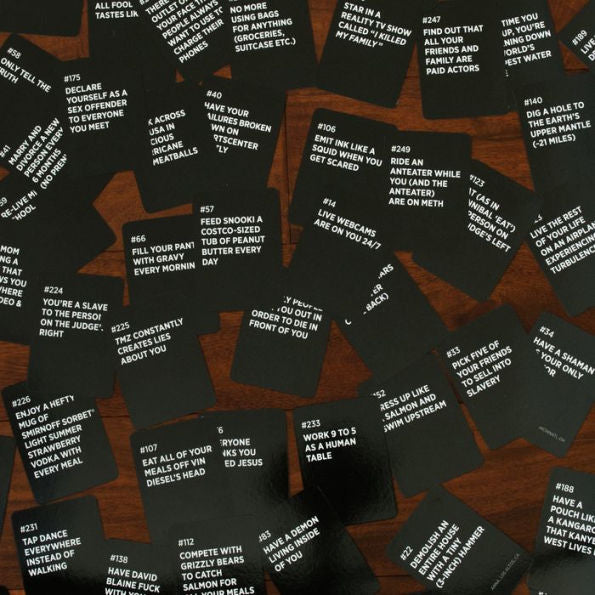 ALL FOOL
TASTES LIK
OUTLET O
YOUR FACE TH
PEOPLE ALWAYS
WANT TO USE T
CHARGE THEIR
PHONES
NO MORE
USING BAGS
FOR ANYTHING
(GROCERIES,
SUITCASE ETC.)
STAR IN A
REALITY TV SHOW
CALLED "I KILLED
MY FAMILY"
#247
FIND OUT THAT
ALL YOUR
FRIENDS AND
FAMILY ARE
PAID ACTORS
TIME YOU
UP, YOU'RE
NING DOWN
WORLD'S
EST WATER
#189
LIVE
#58
ONLY TELL THE
TRUTH
#175
DECLARE
YOURSELF AS A
SEX OFFENDER
TO EVERYONE
YOU MEET
#41
MARRY AND
DIVORCE A NEW
PERSON EVERY
6 MONTHS
(NO PREN
K ACROSS
USA IN
CIOUS
RICANE
MEATBALLS
#40
HAVE YOUR
AILURES BROKEN
WN ON
RTSCENTER
TLY
#106
EMIT INK LIKE A
SQUID WHEN YOU
GET SCARED
#249
RIDE AN
ANTEATER WHILE
YOU (AND THE
ANTEATER)
ARE ON METH
#140
DIG A HOLE TO
THE EARTH'S
UPPER MANTLE
(~21 MILES)
#123
EAT (AS IN
NNIBAL 'EAT')
PERSON ON
DGE'S LEFT
59
RE-LIVE MI
CHOOL
#66
FILL YOUR PANT
WITH GRAVY
EVERY MORNIN
#57
FEED SNOOKI A
COSTCO-SIZED
TUB OF PEANUT
BUTTER EVERY
DAY
#14
LIVE WEBCAMS
ARE ON YOU 24/7
LIVE THE REST
OF YOUR LIFE
ON AN AIRPLAN
EXPERIENCING
TURBULENC
MOM
NG A
THAT
WS YOU
WHERE
DEO &
#224
YOU'RE A SLAVE
TO THE PERSO
ON THE JUDGE'
RIGHT
#225
TMZ CONSTANTLY
CREATES LIES
ABOUT YOU
LY PEOPLE
YOU OUT IN
ORDER TO DIE IN
FRONT OF YOU
EARS
BACK)
#33
PICK FIVE OF
YOUR FRIENDS
TO SELL INTO
SLAVERY
#34
HAVE A SHAMAN
S YOUR ONLY
OR
#226
ENJOY A HEFTY
MUG OF
SMIRNOFF SORBET
LIGHT SUMMER
STRAWBERRY
VODKA WITH
EVERY MEAL
#107
EAT ALL OF YOUR
MEALS OFF VIN
DIESEL'S HEAD
RYONE
NKS YOU
ED JESUS
#233
WORK 9 TO 5
AS A HUMAN
TABLE
52
RESS UP LIKE
SALMON AND
WIM UPSTREAM
#231
TAP DANCE
EVERYWHERE
INSTEAD OF
WALKING
#138
HAVE DAVID
BLAINE FUCK
WITH YOU
#112
COMPETE WITH
GRIZZLY BEARS
TO CATCH
SALMON FOR
ALL YOUR MEALS
#83
HAVE A DEMON
LIVING INSIDE
OF YOU
#22
DEMOLISH AN
ENTIRE HOUSE
WITH A TINY
(3-INCH) HAMMER
#188
HAVE A
POUCH LIK
A KANGARO
THAT KANYE
WEST LIVES I